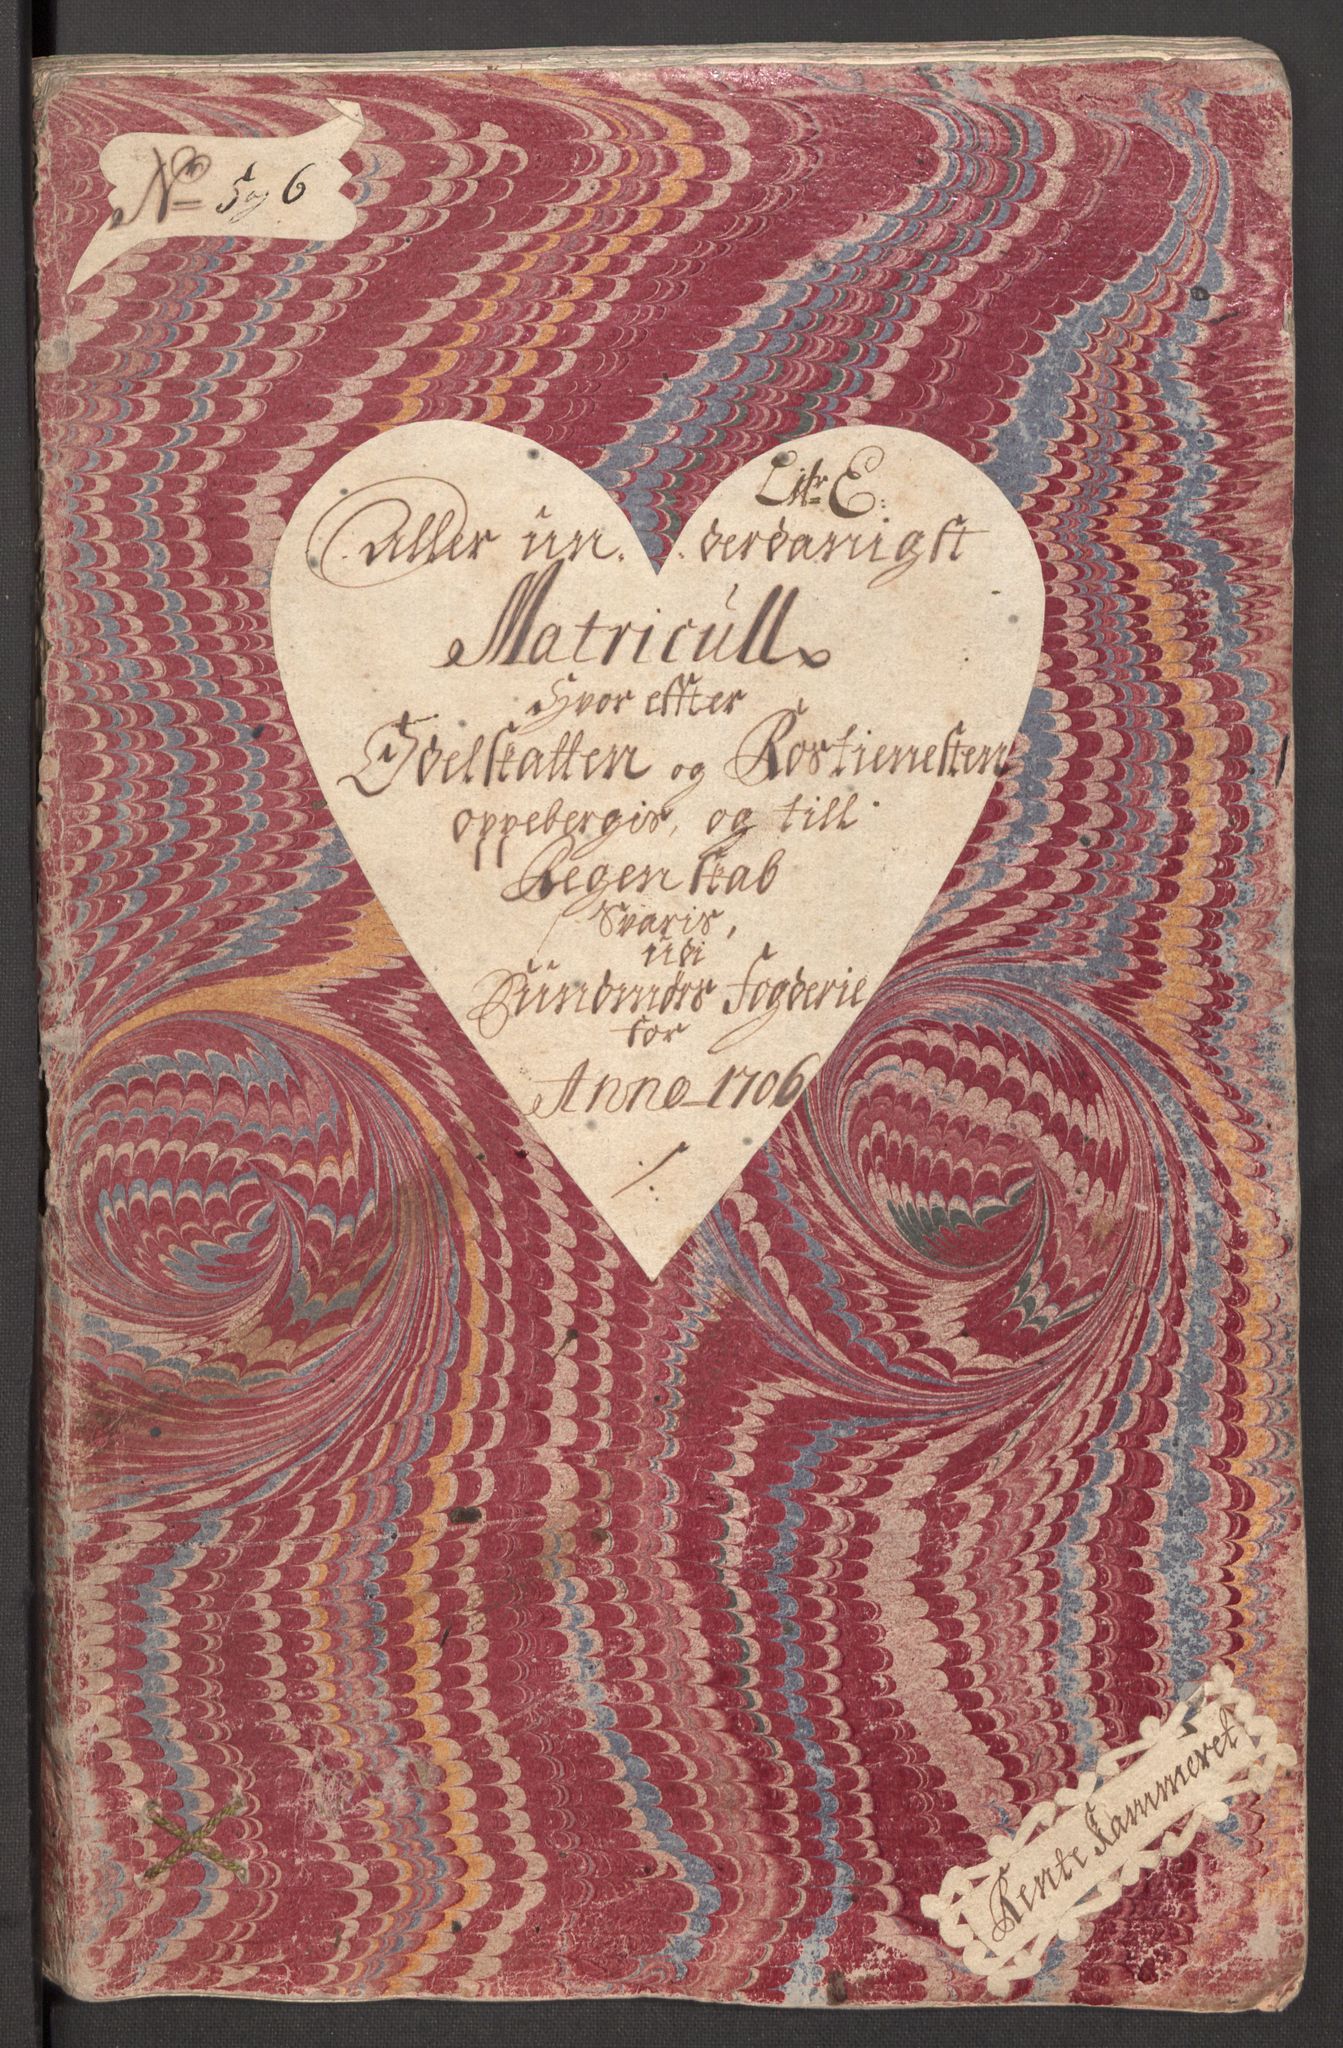 No 5 og 6
Litr E:
Aller un- derdanigst
Matricull
Hvor effter
Odelskatten og Rostienesten
oppebergis, og till
Regenskab
Svaris,
udi
Sundmørs Fogderie
for
Anno 1706
Rente Kammeret